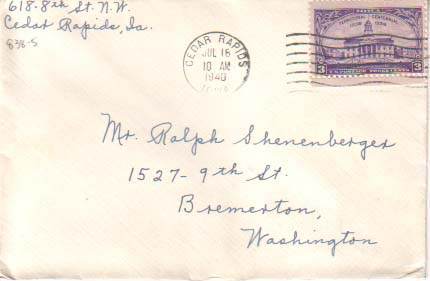 618-8th St. N.W.
Cedar Rapids, Ia.
838-S
CEDAR RAPIDS
JUL 16
10 AM
1940
IOWA
TERRITORIAL CENTENNIAL
1838 1938
3 3
U.S. POSTAGE THREE CENTS
Mr. Ralph Shenenberger
1527-9th St.
Bremerton,
Washington